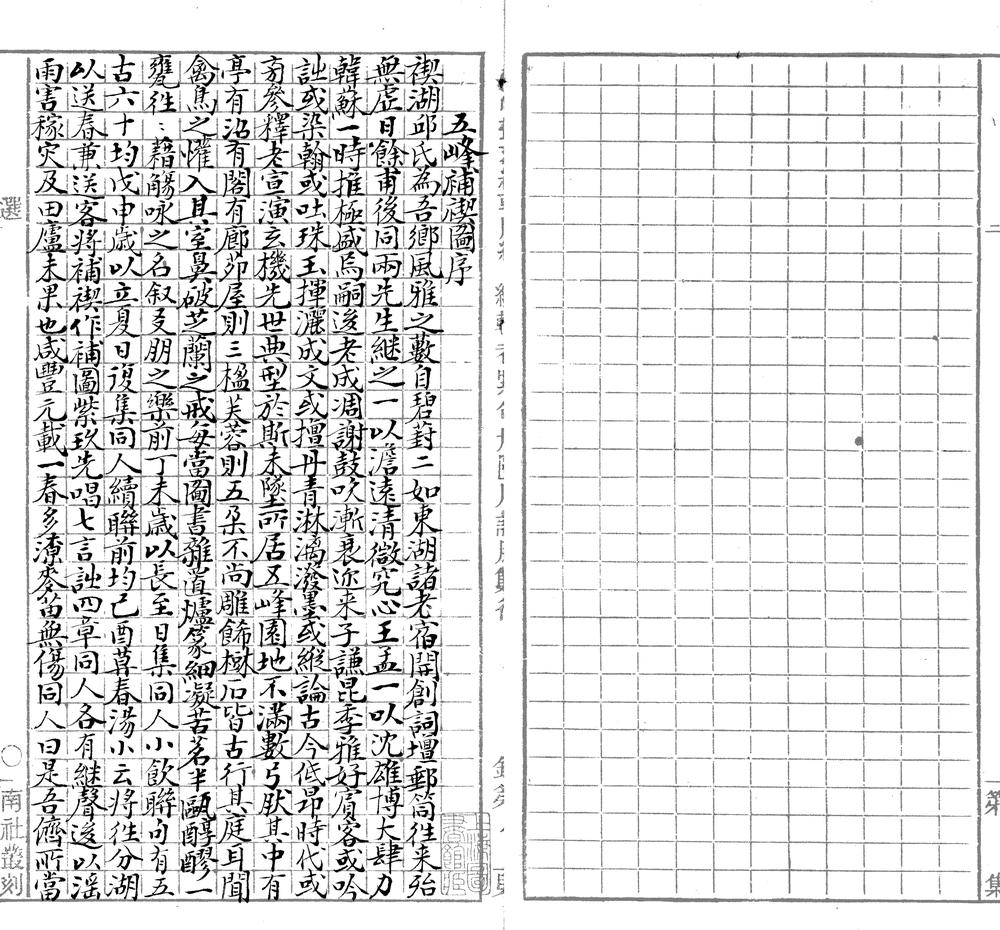 五峰補禊圖序
禊湖邱氏為吾鄉風雅之藪自碧葑二如東湖諸老宿開創詞壇郵筒往来殆
無虛日餘甫後同兩先生継之一以澹遠清微究心王孟一以沈雄博大肆力
韓蘇一時推極盛焉嗣後老成凋謝鼓吹漸衰迩来子謙昆季雅好賓客或吟
詘或染翰或吐珠玉揮灑成文或擅丹青淋漓潑墨或縱論古今低昂時代或
旁參釋老宣演玄機先世典型於斯未墜所居五峰園地不滿數弓肰其中有
亭有沼有閣有廊茆屋則三楹芙蓉則五朶不尚雕餙樹石皆古行其庭耳聞
禽鳥之懽入其室鼻破芝蘭之戒每當圖書雜置爐篆細凝苦茗半甌醇醪一
甕徃〻藉觴咏之名叙友朋之樂前丁未歲以長至日集同人小飲聯句有五
古六十均戊申歲以立夏日復集同人續聯前均己酉莫春湯小云將徃分湖
以送春兼送客將補禊作補圖紫玖先唱七言詘四章同人各有継聲後以滛
雨害稼灾及田廬未果也咸豐元載一春多潦麥苗無傷同人曰是吾儕所當
選
南社叢刻
第
集